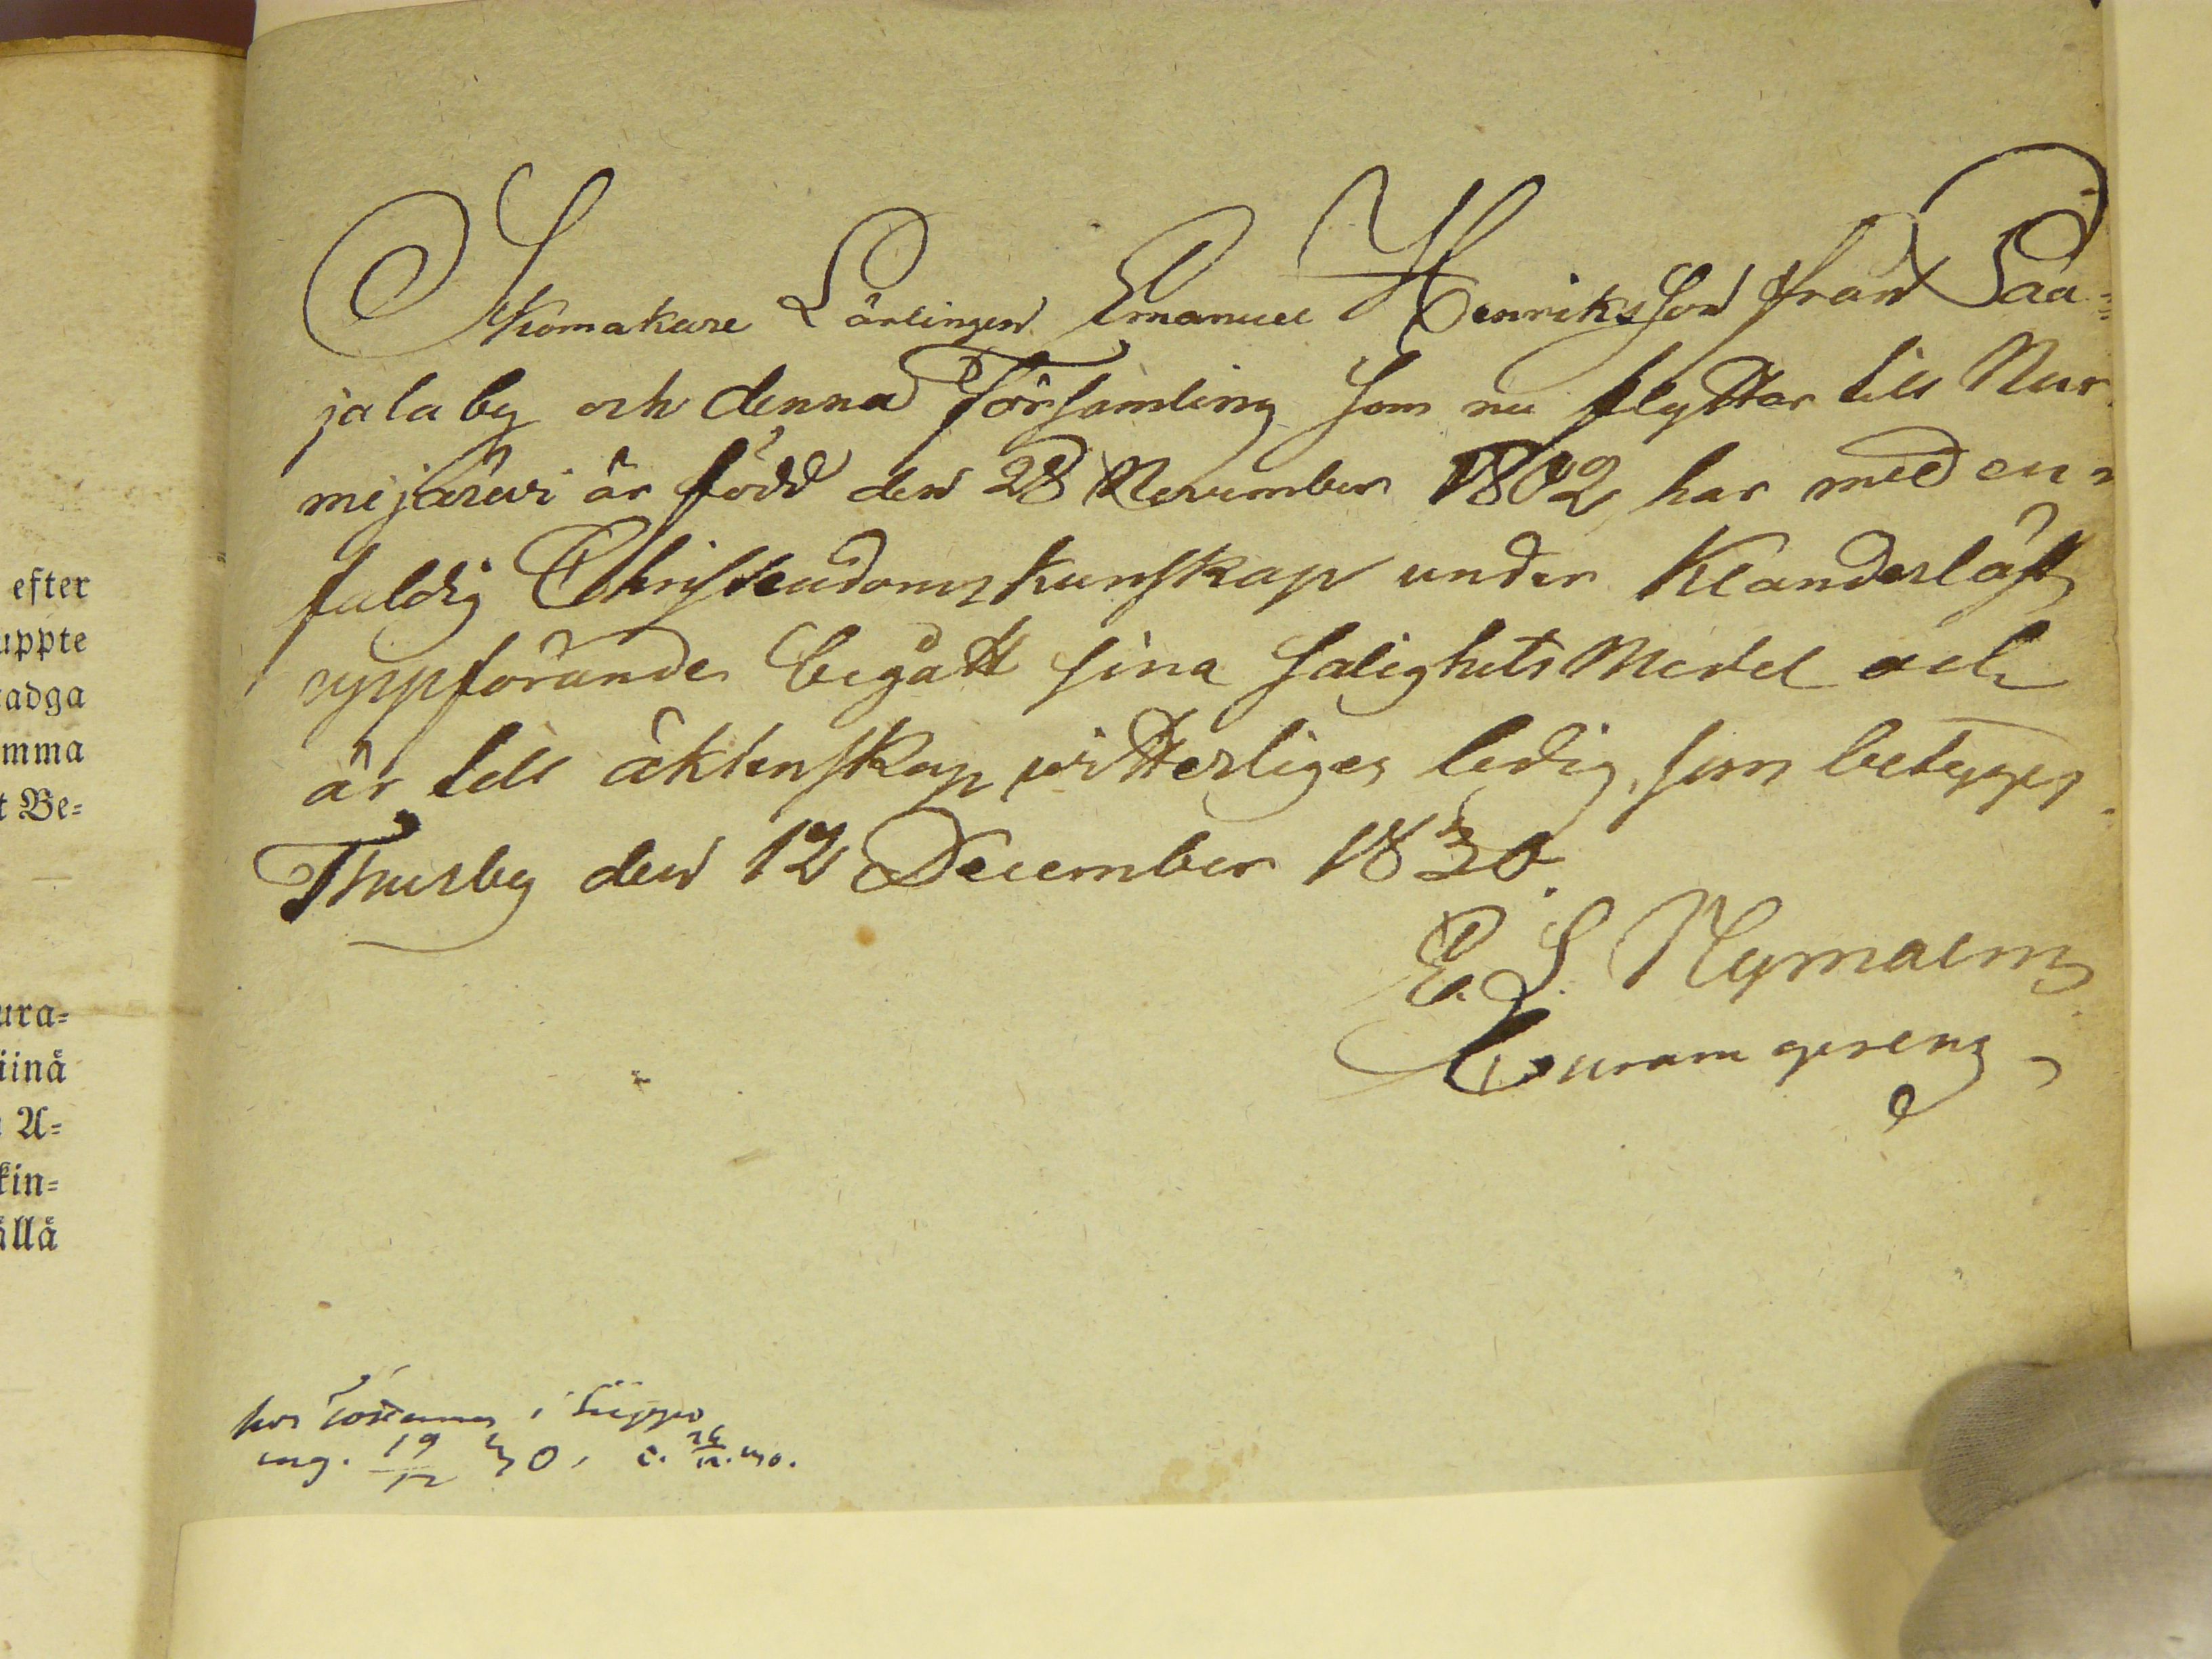 Skomakare Lärlingen Emanuel Henriksson från Paa=
jala by och denna Församling som nu flyttar till Nur
mijärwi är född den 28 November 1802 har med en=
faldig Christendoms kunskap under klanderlöst
uppförande begått sina Salighets Medel och
är till äktenskap witterligen ledig, som betygas
Thusby den 12 December 1830.
E. S. Nymalm
Curam gerens
hos i
ing. 19/12 30,
efter
uppte
tadga
mma
t Be=
ura=
iinä
A=
kin=
ällä